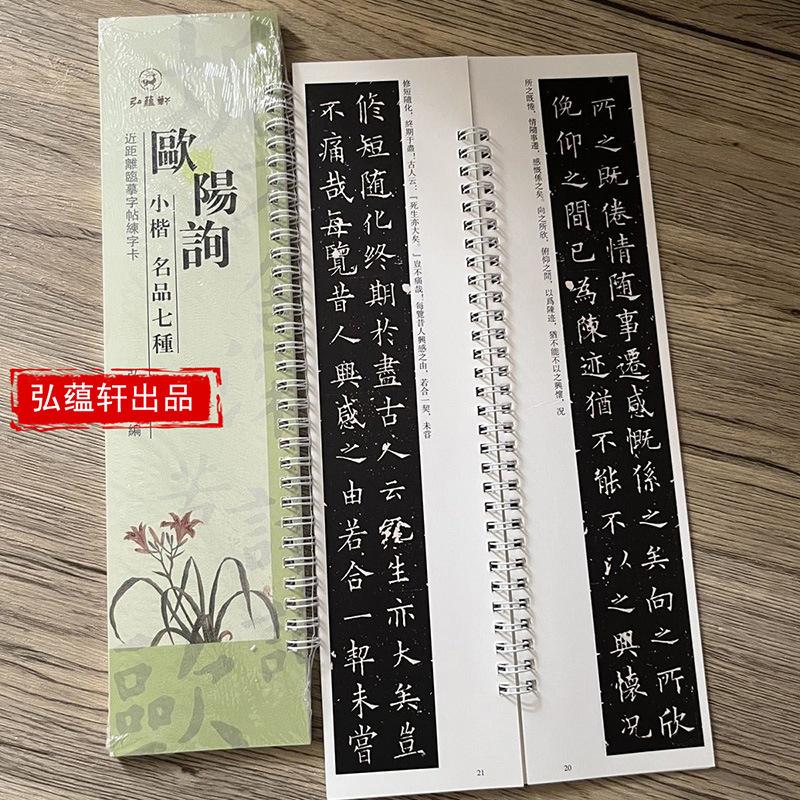 弘蕴軒
歐陽詢
小楷 名品七種
近距離臨摹字帖練字卡
編
弘蕴轩出品
所之既倦情随事遷感慨係之矣向之所欣
俛仰之間已為陳迹猶不能不以之興懷况
所之既惓,情隨事遷,感慨係之矣。向之所欣,俯仰之間,以爲陳迹,猶不能不以之興懷,况
20
修短随化終期於盡古人云生亦大矣豈
不痛哉每覽昔人興感之由若合一契未嘗
修短隨化,終期于盡!古人云:『死生亦大矣。』豈不痛哉!每覽昔人興感之由,若合一契,未嘗
21